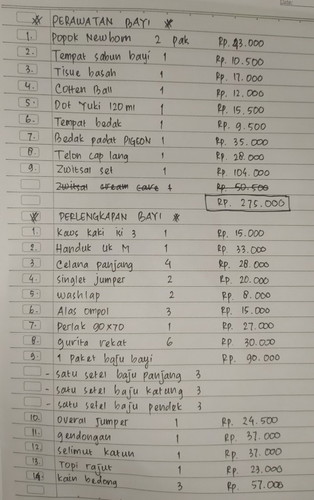 * PERAWATAN BAYI *
1. Popok Newborn 2 pak Rp. 43.000
2. Tempat sabun bayi 1 Rp. 10.500
3. Tisue basah 1 Rp. 17.000
4. Cotten Ball 1 Rp. 12.000
5. Dot Yuki 120 ml 1 Rp. 15.500
6. Tempat bedak 1 Rp. 9.500
7. Bedak padat PIGEON 1 Rp. 35.000
8. Telon cap lang 1 Rp. 28.000
9. Zwitsal set 1 Rp. 104.000
Zwitsal cream care 1 Rp. 50.500
Rp. 275.000
* PERLENGKAPAN BAYI *
1. Kaos kaki isi 3 1 Rp. 15.000
2. Handuk uk M 1 Rp. 33.000
3. Celana panjang 4 Rp. 28.000
4. Singlet jumper 2 Rp. 20.000
5. washlap 2 Rp. 8.000
6. Alas ompol 3 Rp. 15.000
7. Perlak 90x70 1 Rp. 27.000
8. gurita rekat 6 Rp. 30.000
9. 1 paket baju bayi Rp. 90.000
- satu setel baju panjang 3
- satu setel baju katung 3
- satu setel baju pendek 3
10. overal jumper 1 Rp. 24.500
11. gendongan 1 Rp. 37.000
12. selimut katun 1 Rp. 37.000
13. Topi rajut 1 Rp. 23.000
14. kain bedong 3 Rp. 57.000